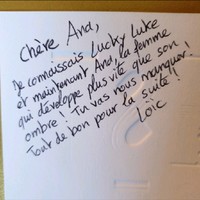 Chère And,
Je connaissais Lucky Luke
et maintenant And, la femme
qui développe plus vite que son
ombre ! Tu vas nous manquer !
Tout de bon pour la suite !
Loïc